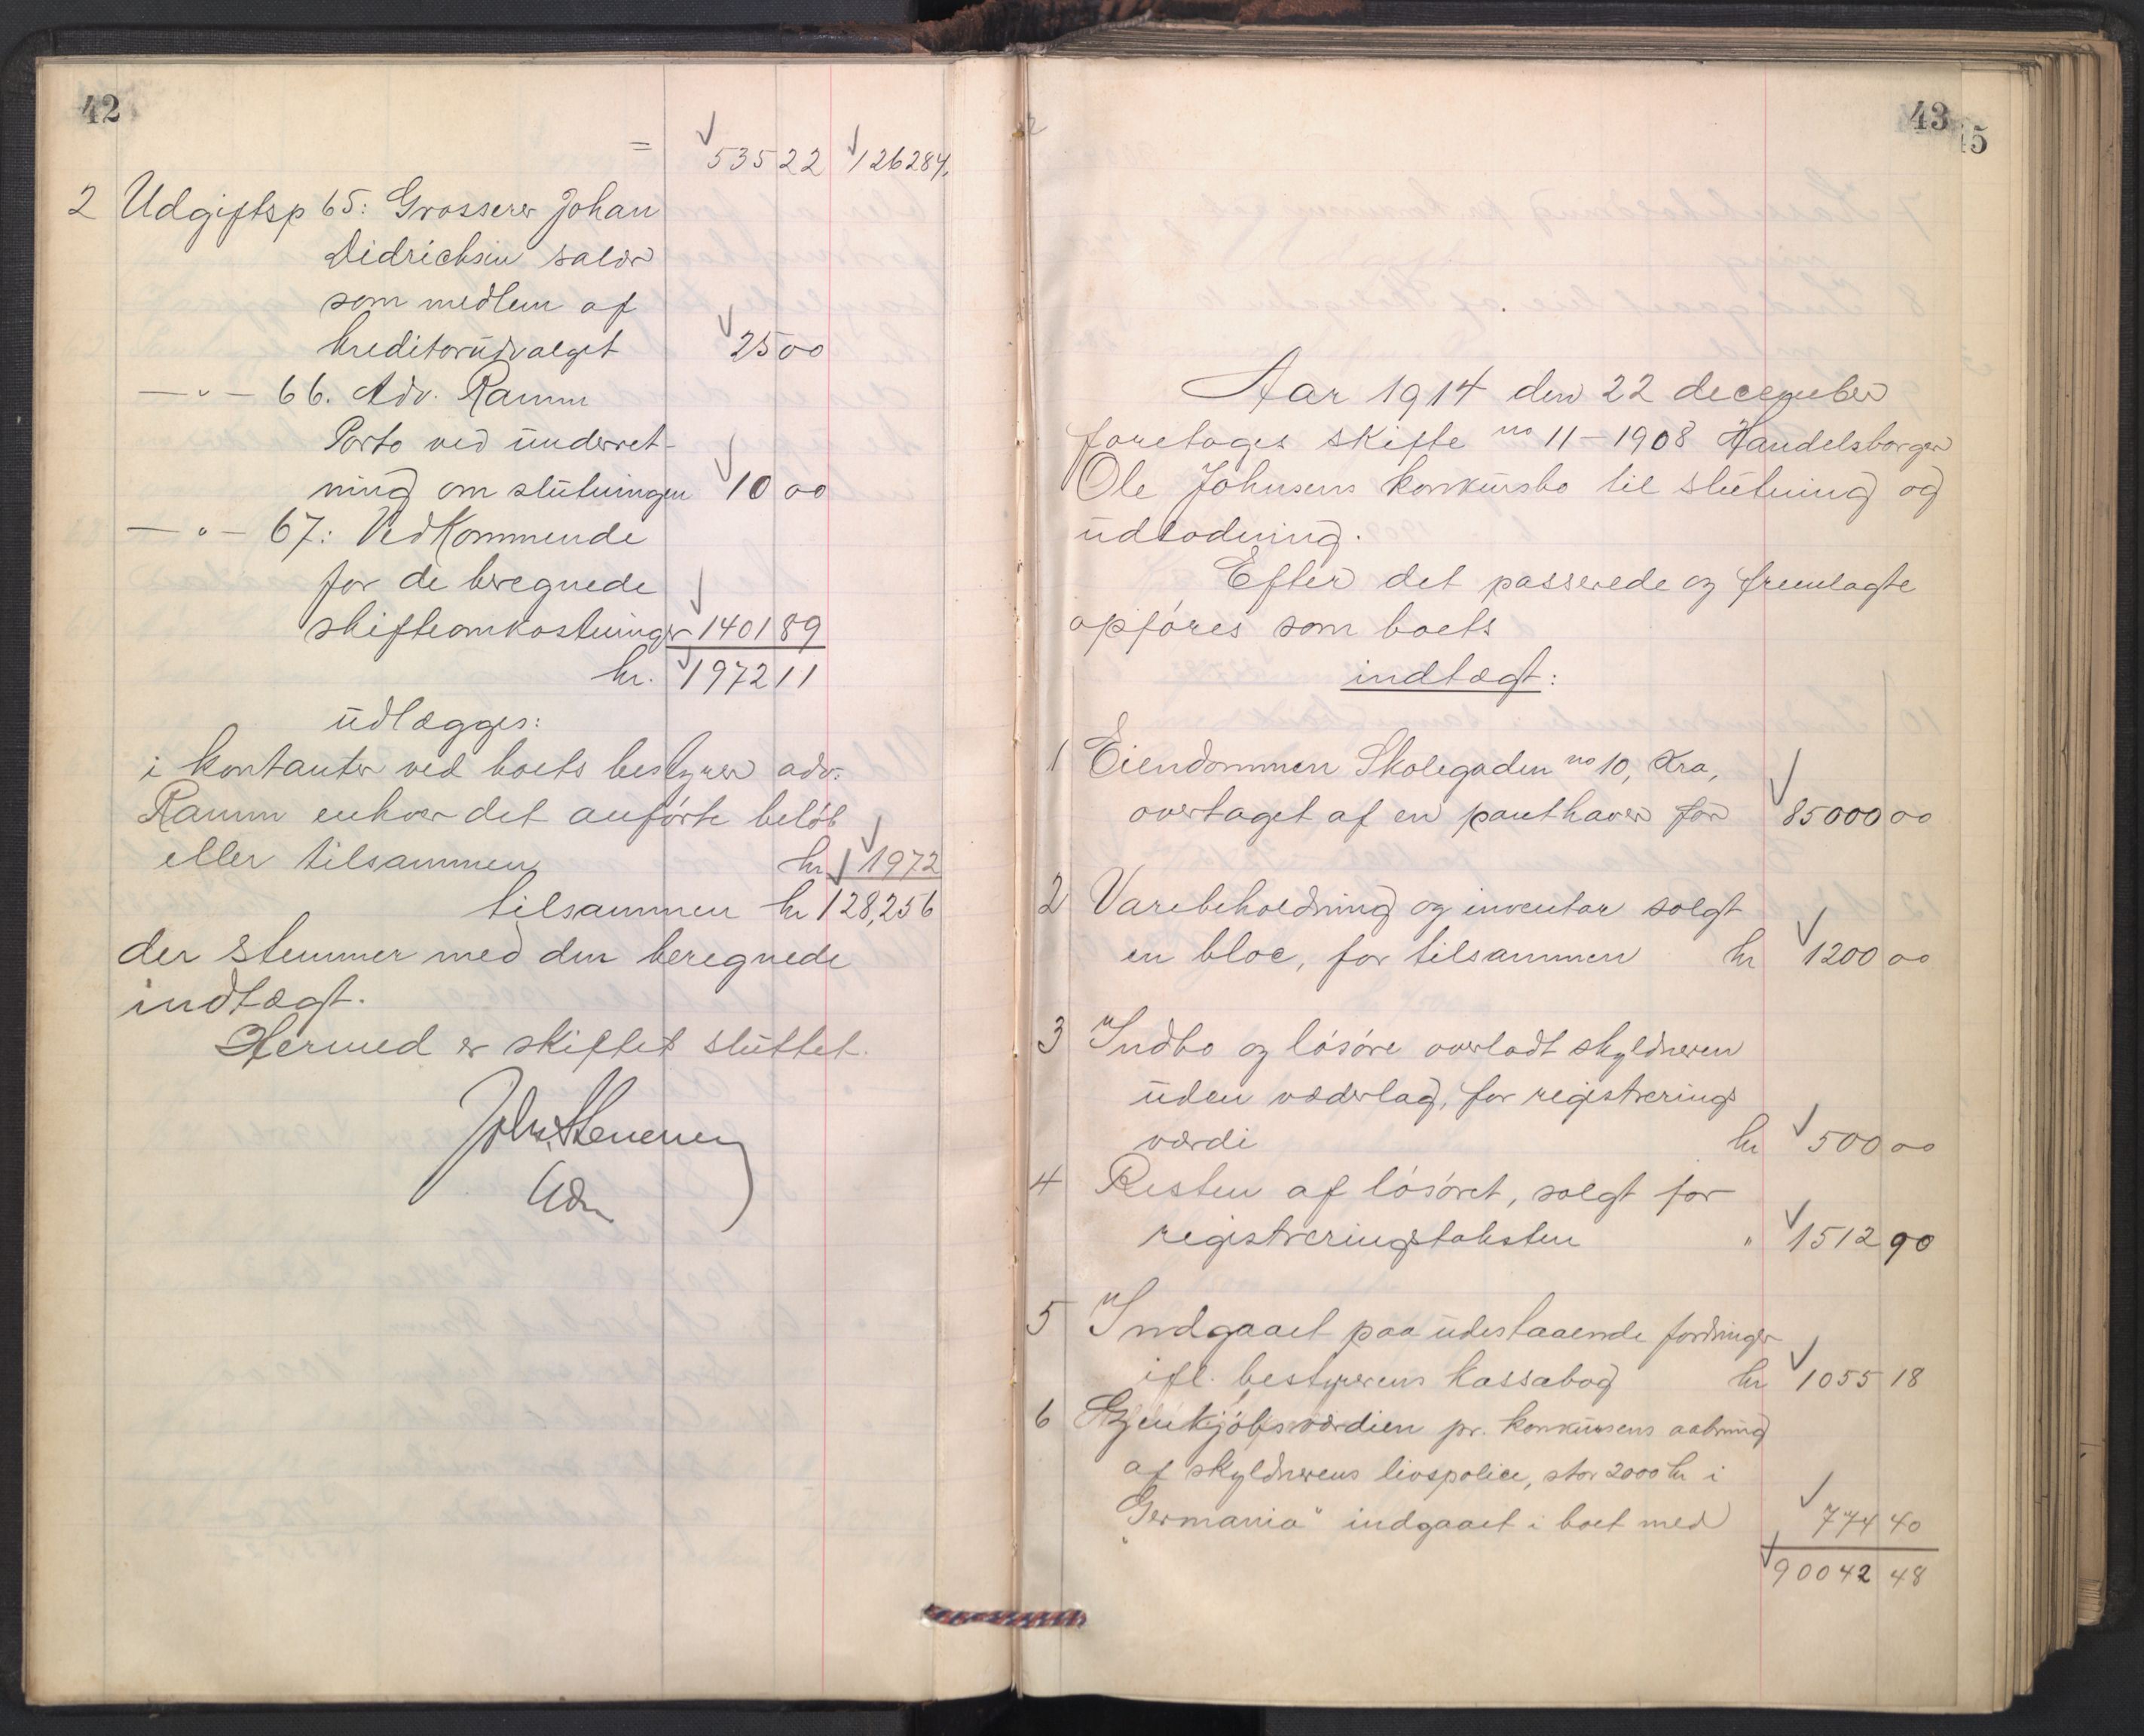 42
= 535 22 126284.
2 Udgiftsp 65: Grosserer Johan
Didrichsen salær
som medlem af
kreditorudvalget 25 00
— " — 66. Adv. Ramm
Porto ved underret-
ning om slutningen 10 00
— " — 67: Vedkommende
for de beregnede
skifteomkostninger 1401 89
kr. 1972 11
udlægges:
i kontanter ved boets bestyrer adv.
Ramm enhver det anførte beløb
eller tilsammen kr 1972
tilsammen kr 128,256
der stemmer med den beregnede
indtægt.
Hermed er skiftet sluttet.
43
Aar 1914 den 22 december
foretoges skifte no 11-1908 Handelsborger
Ole Johnsens konkursbo til slutning og
udlodning.
Efter det passerede og fremlagte
opføres som boets
indtægt:
1 Eiendommen Skolegaden no 10, Kra,
overtaget af en panthaver for 85000 00
2 Varebeholdning og inventar solgt
en bloc, for tilsammen kr 1200 00
3 Indbo og løsøre overladt skyldneren
uden vederlag, for registrerings
værdi kr 500 00
4 Resten af løsøret, solgt for
registreringstaksten " 1512 90
5 Indgaaet paa udestaaende fordringer
ifl. bestyrerens kassabog kr 1055 18
6 Gjenkjøbsværdien pr. konkursens aabning
af skyldnerens livspolice, stor 2000 kr i
"Germania" indgaaet i boet med 774 40
90042 48